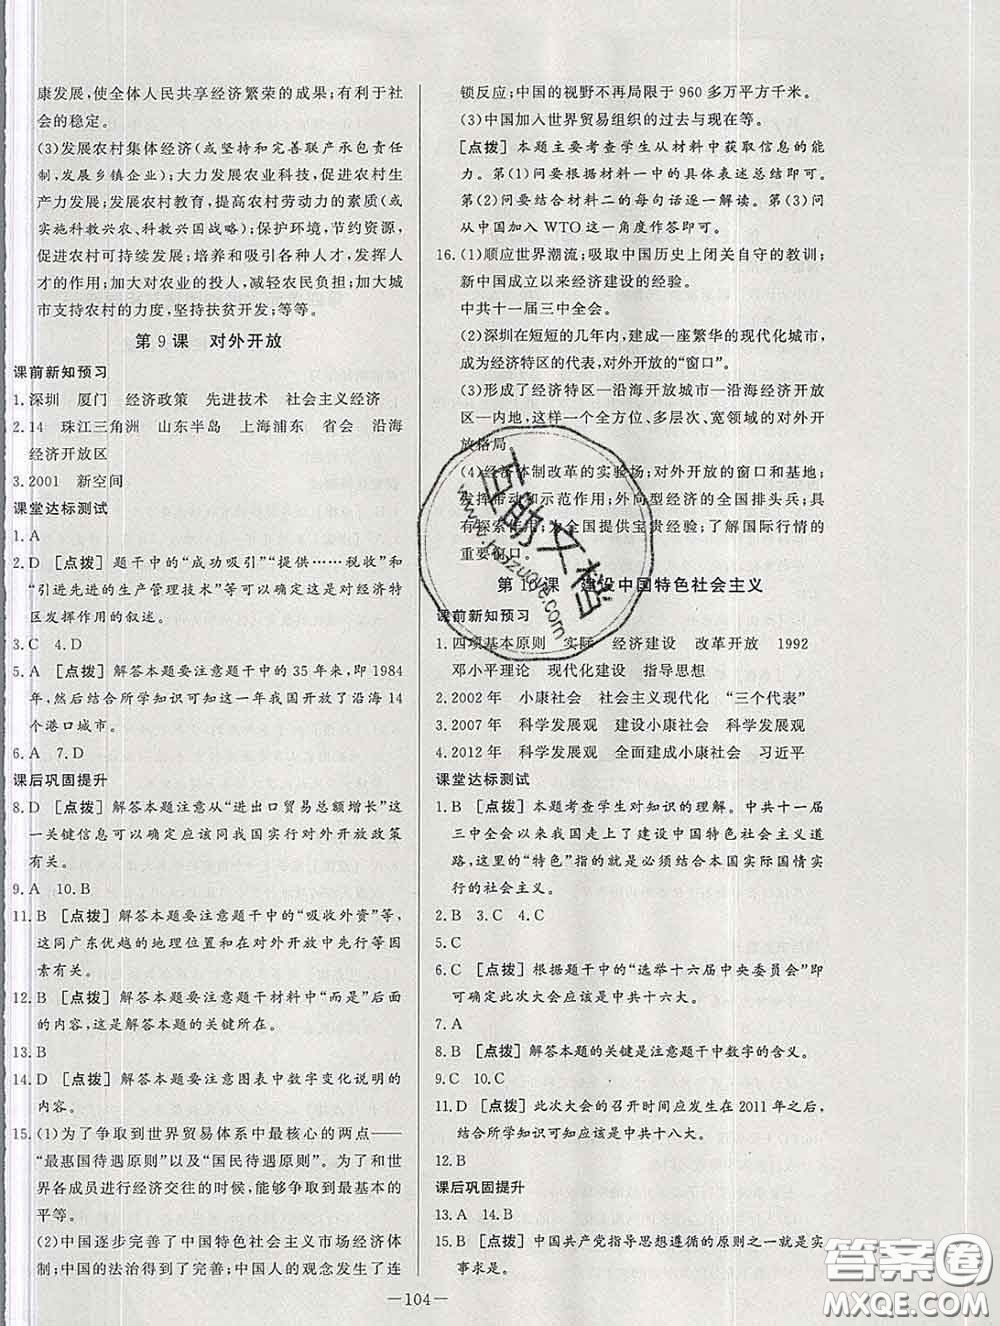 康发展,使全体人民共享经济繁荣的成果;有利于社
会的稳定。
(3)发展农村集体经济(或坚持和完善联产承包责任制,
发展乡镇企业);大力发展农业科技,促进农村生
产发展;发展农村教育,提高农村劳动力的素质(或
实施科教兴农、科教兴国战略);保护环境,节约资源,
促进农村可持续发展;培养和吸引各类人才,发挥人
才的作用;加大对农业的投人,减轻农民负担;加大城
市支持农村的力度,坚持扶贫开发;等等。
第9课 对外开放
课前新知预习
1.深圳 厦门 经济政策 先进技术 社会主义经济
2.14 珠江三角洲 山东半岛 上海浦东 省会 沿海
经济开放区
3.2001 新空间
课堂达标测试
1.A
2.D [点拨] 题干中的“成功吸引”“提供……税收”和
“引进先进的生产管理技术”等可以看出这是对经济特
区发挥作用的叙述。
3.C 4.D
5.A [点拨] 解答本题要注意题干中的35年来,即1984
年,然后结合所学知识可知这一年我国开放了沿海14
个港口城市。
6.A 7.D
课后巩固提升
8.D [点拨] 解答本题注意从“进出口贸易总额增长”这
一关键信息可以确定应该同我国实行对外开放政策
有关。
9.A 10.B
11.B [点拨] 解答本题要注意题干中的“吸收外资”等,
这同广东优越的地理位置和在对外开放中先行等因
素有关。
12.B [点拨] 解答本题要注意题干材料中“而是”后面
的内容,这是解答本题的关键所在。
13.B
14.D [点拨] 解答本题要注意图表中数字变化说明的
内容。
15.(1)为了争取到世界贸易体系中最核心的两点——
“最惠国待遇原则”以及“国民待遇原则”。为了和世
界各成员进行经济交往的时候,能够争取到最基本的
平等。
(2)中国逐步完善了中国特色社会主义市场经济体
制;中国的法治得到了完善;中国人的观念发生了连
锁反应;中国的视野不再局限于960多万平方千米。
(3)中国加入世界贸易组织的过去与现在等。
[点拨] 本题主要考查学生从材料中获取信息的能
力。第(1)问要根据材料一中的具体表述总结即可。
第(2)问要结合材料二的每句话逐一解读。第(3)问
从中国加入WTO这一角度作答即可。
16.(1)顺应世界潮流;吸取中国历史上闭关自守的教训;
新中国成立以来经济建设的经验。
中共十一届三中全会。
(2)深圳在短短的几年内,建成一座繁华的现代化城市,
成为经济特区的代表,对外开放的“窗口”。
(3)形成了经济特区—沿海开放城市—沿海经济开放
区—内地,这样一个全方位、多层次、宽领域的对外开
放格局。
(4)经济体制改革的实验场;对外开放的窗口和基地;
发挥带动和示范作用;外向型经济的全国排头兵;具
有探索作用;为全国提供宝贵经验;了解国际行情的
重要窗口。
第10课 建设中国特色社会主义
课前新知预习
1.四项基本原则 实际 经济建设 改革开放 1992
邓小平理论 现代化建设 指导思想
2.2002年 小康社会 社会主义现代化 “三个代表”
3.2007年 科学发展观 建设小康社会 科学发展观
4.2012年 科学发展观 全面建成小康社会 习近平
课堂达标测试
1.B [点拨] 本题考查学生对知识的理解。中共十一届
三中全会以来我国走上了建设中国特色社会主义道
路,这里的“特色”指的就是必须结合本国实际国情实
行的社会主义。
2.B 3.C 4.C
5.C
6.C [点拨] 根据题干中的“选举十六届中央委员会”即
可确定此次大会应该是中共十六大。
7.A
8.B [点拨] 解答本题的关键是注意题干中数字的含义。
9.C 10.C
11.D [点拨] 此次大会的召开时间应发生在2011年之后,
结合所学知识可知应该是中共十八大。
12.B
课后巩固提升
13.A 14.B
15.B [点拨] 中国共产党指导思想遵循的原则之一就是实
事求是。
—104—
互助文档
www.huzuoye.com
答案圈
MXQE.COM